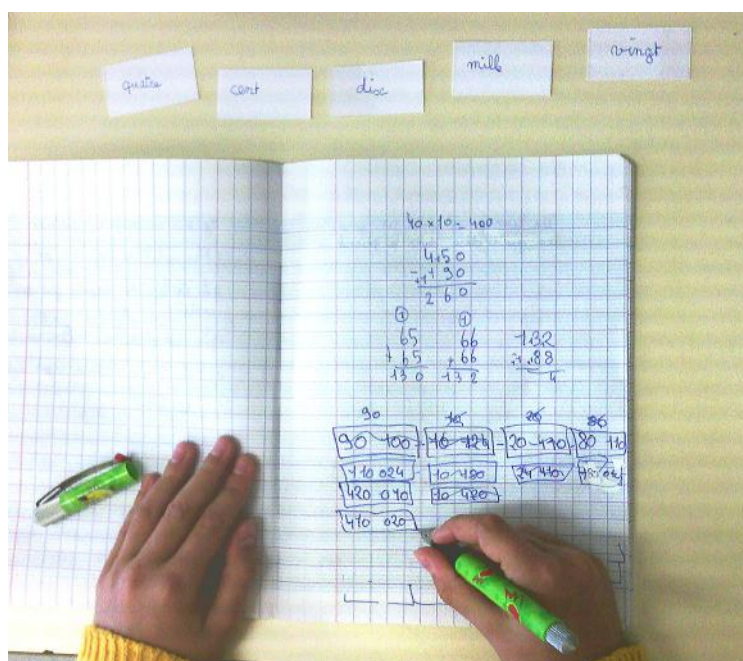 quatre cent dix mille vingt
40 × 10 = 400
4,50
- 1 90
2 6 0
1 1
65 66 132
+ 65 + 66 - 88
130 132 4
90
90 100 - 16 124 - 20 410 - 80 110
110 024 10 480 24 410
420 010 10 420
410 020